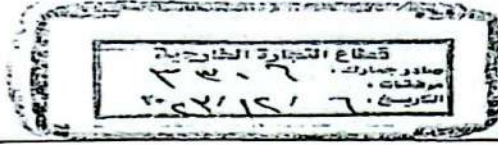 قطاع التجارة الخارجية
صادر جمارك : ٣٣٠٦
مرفقات :
التاريخ : ٦ / ١٢ / ٢٠٢٣